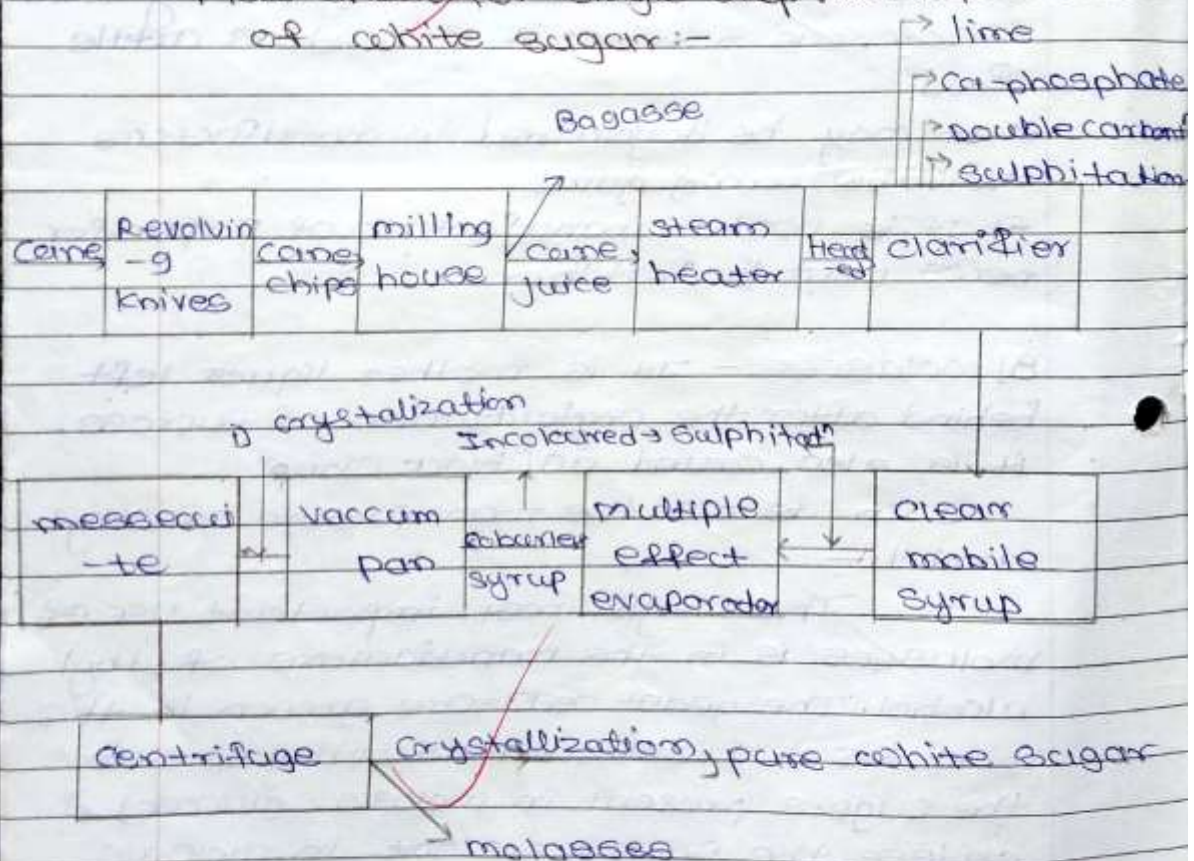 of white sugar:-
lime
Ca-phosphate
Double carbont
Sulphitation
Bagasse
Cane
Revolvin
-g
knives
cane
chips
milling
house
cane
juice
steam
heater
Heat
-ed
clarifier
1) crystalization
Incoloured → Sulphitatn
messecui
-te
vaccum
pan
syrup
multiple
effect
evaporator
clear
mobile
syrup
centrifuge
Crystallization, pure white sugar
molasses